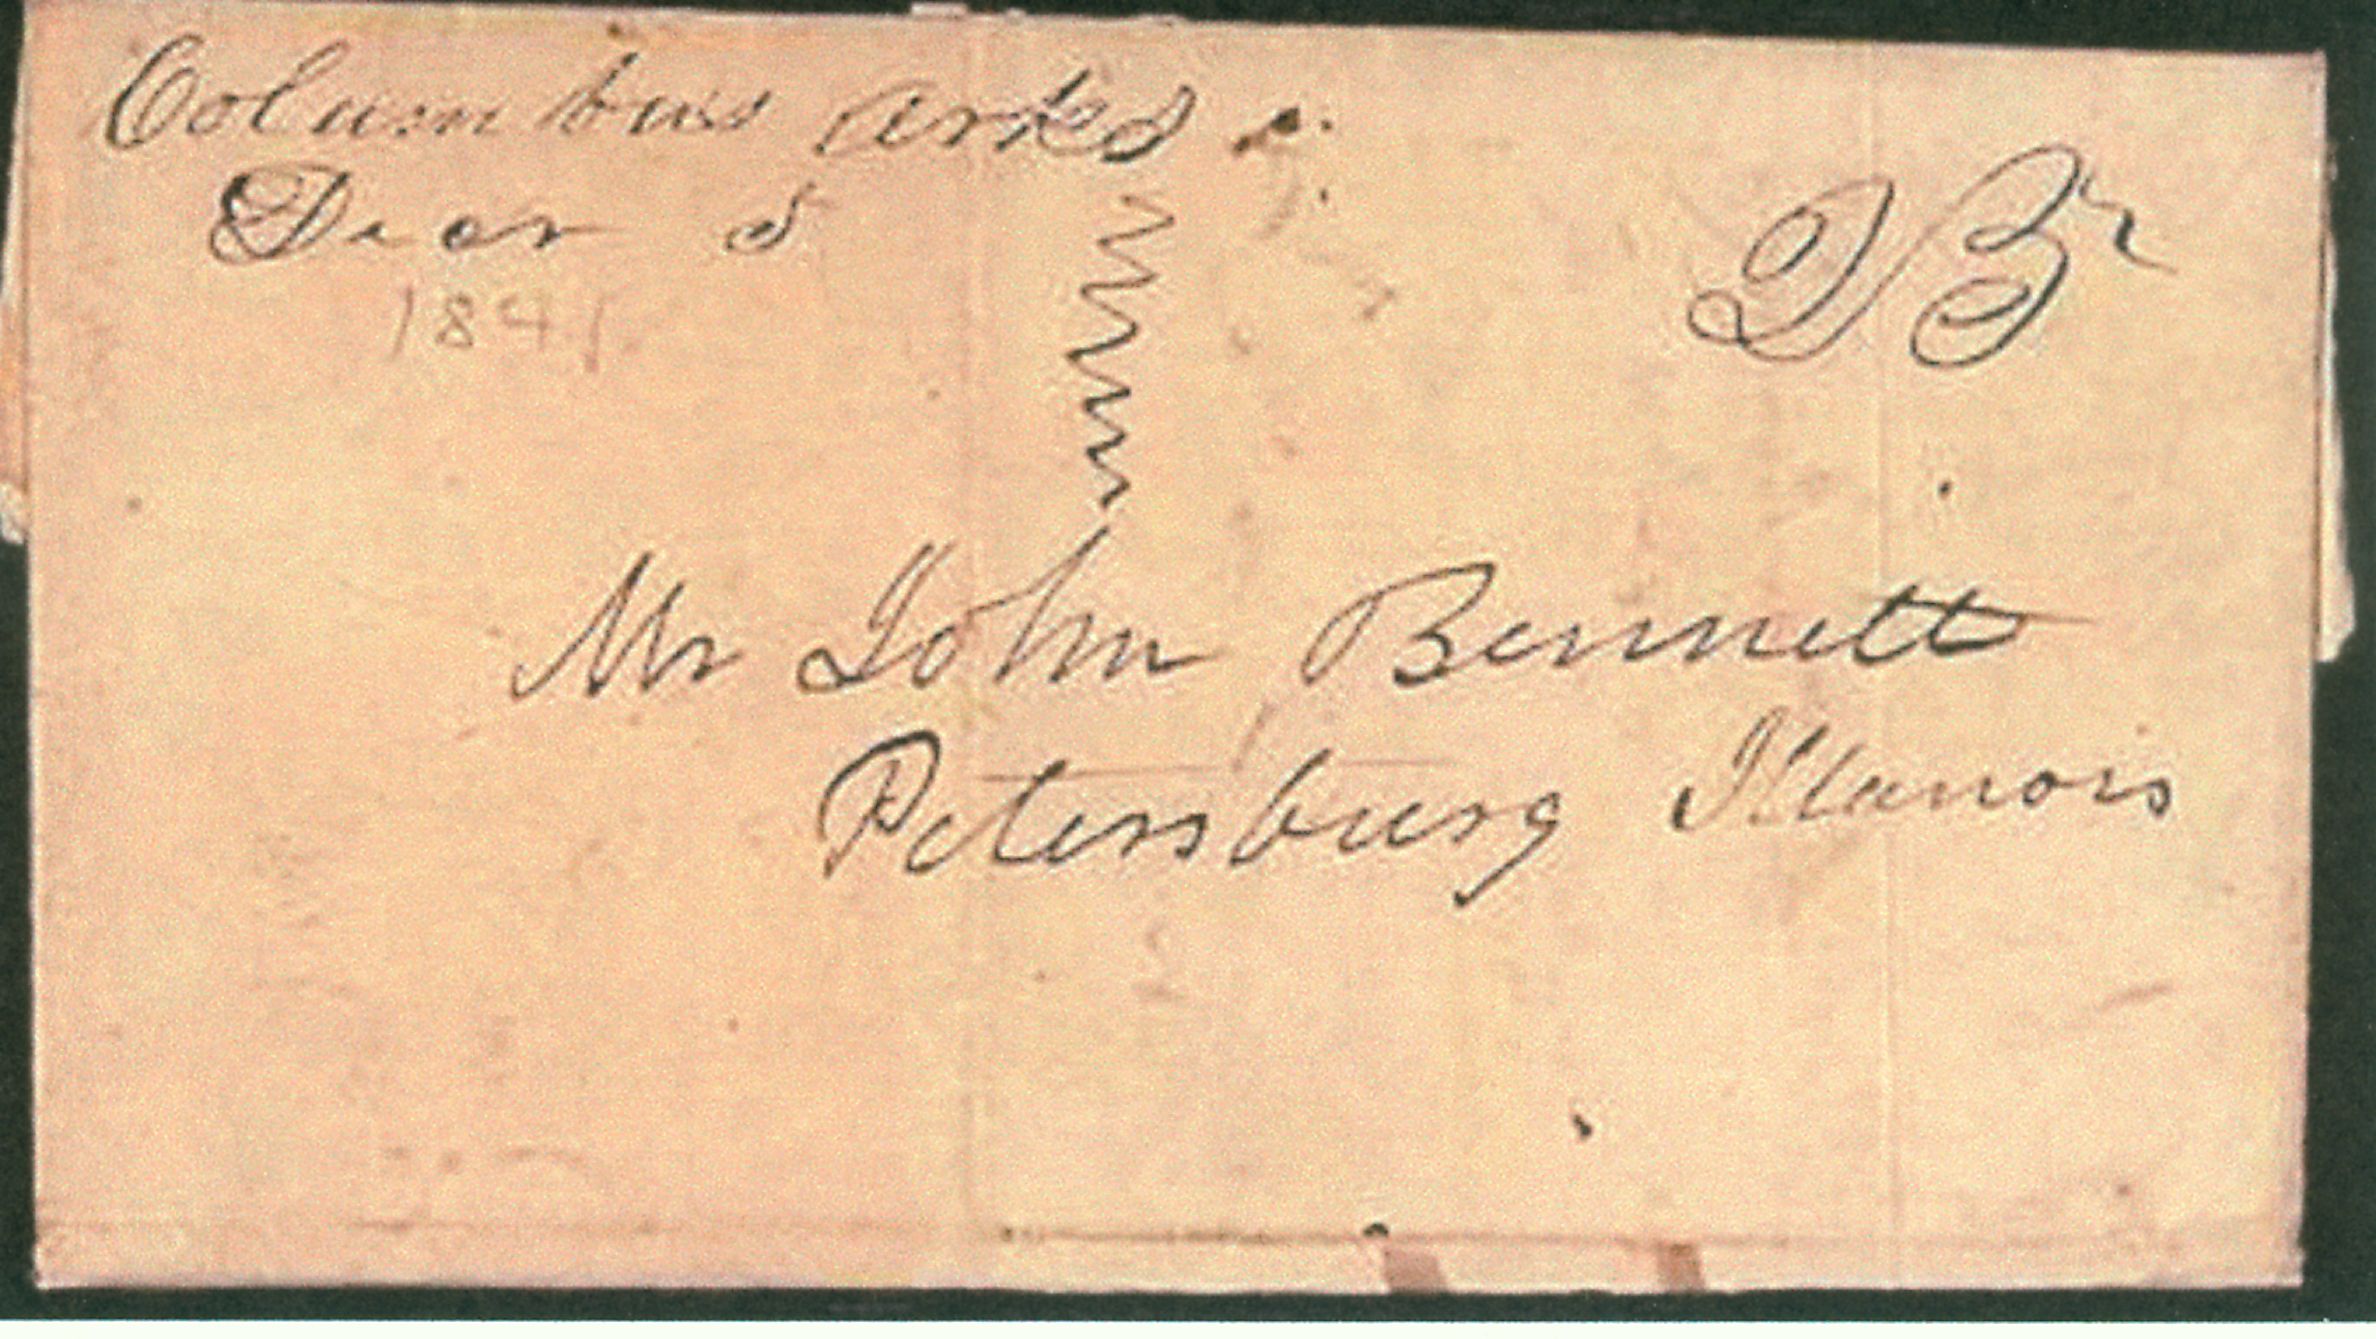 Columbus Arks
Decr 5
1841
Mr John Bennett
Petersburg Illanois